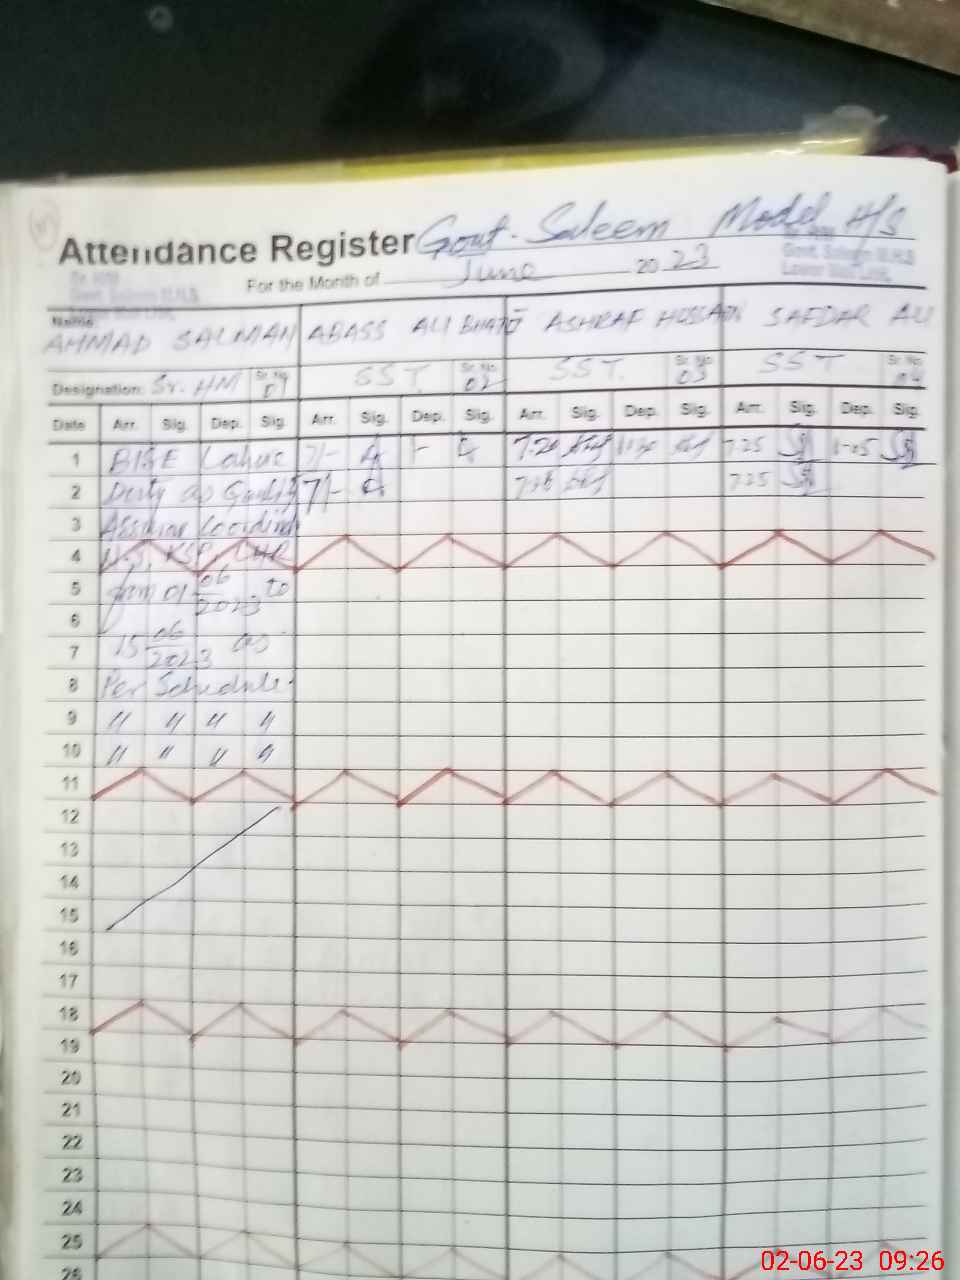 Attendance Register Govt. Saleem Model H/S
For the Month of June 2023
Name
AHMAD SALMAN ABASS ALI BHATTI ASHRAF HUSSAIN SAFDAR ALI
Designation: Sr. HM Sr. No. 01 SST. Sr. No. 02 SST. Sr. No. 03 SST. Sr. No. 04
Date Arr. Sig. Dep. Sig. Arr. Sig. Dep. Sig. Arr. Sig. Dep. Sig. Arr. Sig. Dep. Sig.
1 BISE Lahore 7/- 7.20 7.25 1-05
2 Duty as 7/- 7.25
3
4
5 from 01 06/2023 to
6
7 15 06/2023 as
8 Per Schedule.
9 " " " "
10 " " " "
11
12
13
14
15
16
17
18
19
20
21
22
23
24
25
26
02-06-23 09:26